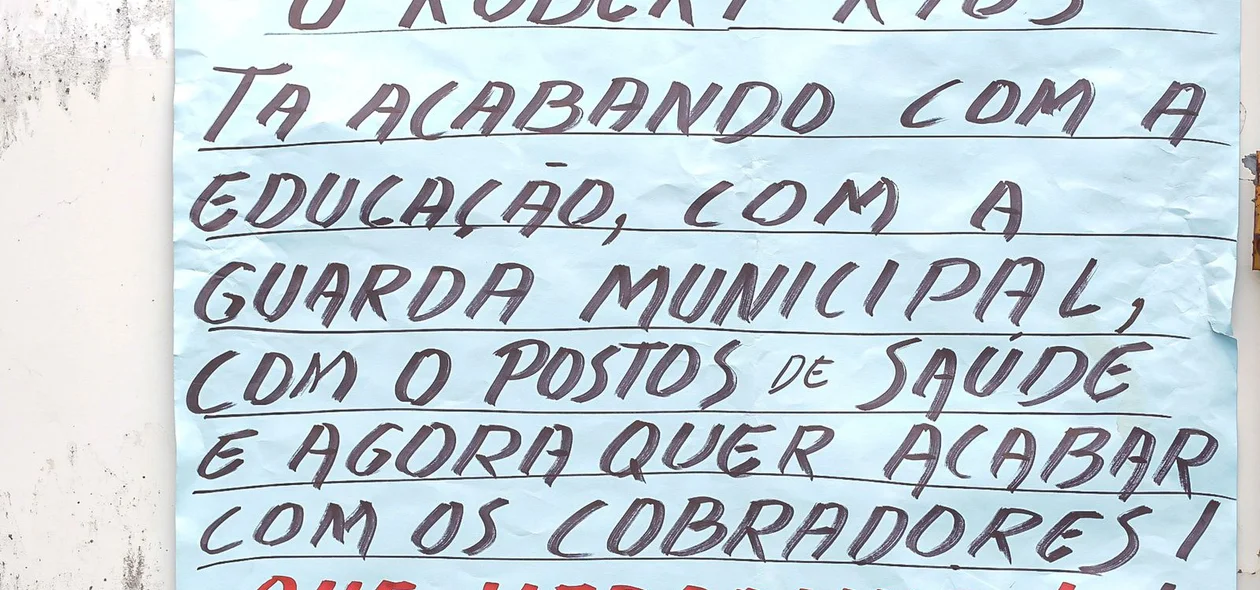 O ROBERT RIOS
TA ACABANDO COM A
EDUCAÇÃO, COM A
GUARDA MUNICIPAL,
COM O POSTOS DE SAÚDE
E AGORA QUER ACABAR
COM OS COBRADORES!
QUE